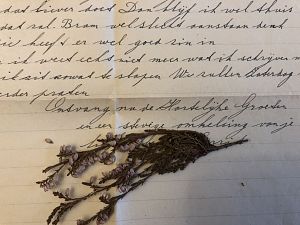 doet liever doet Dan blijf ik wel thuis
dat zal. Bram wel slecht aanstaan want
die heeft er wel goed zin in
ik weet echt niet meer wat ik schrijven m
ik zit zowat te slapen We zullen Zaterdag
verder praten
Ontvang nu de Hartelijke Groeten
en een stevige omhelzing van je